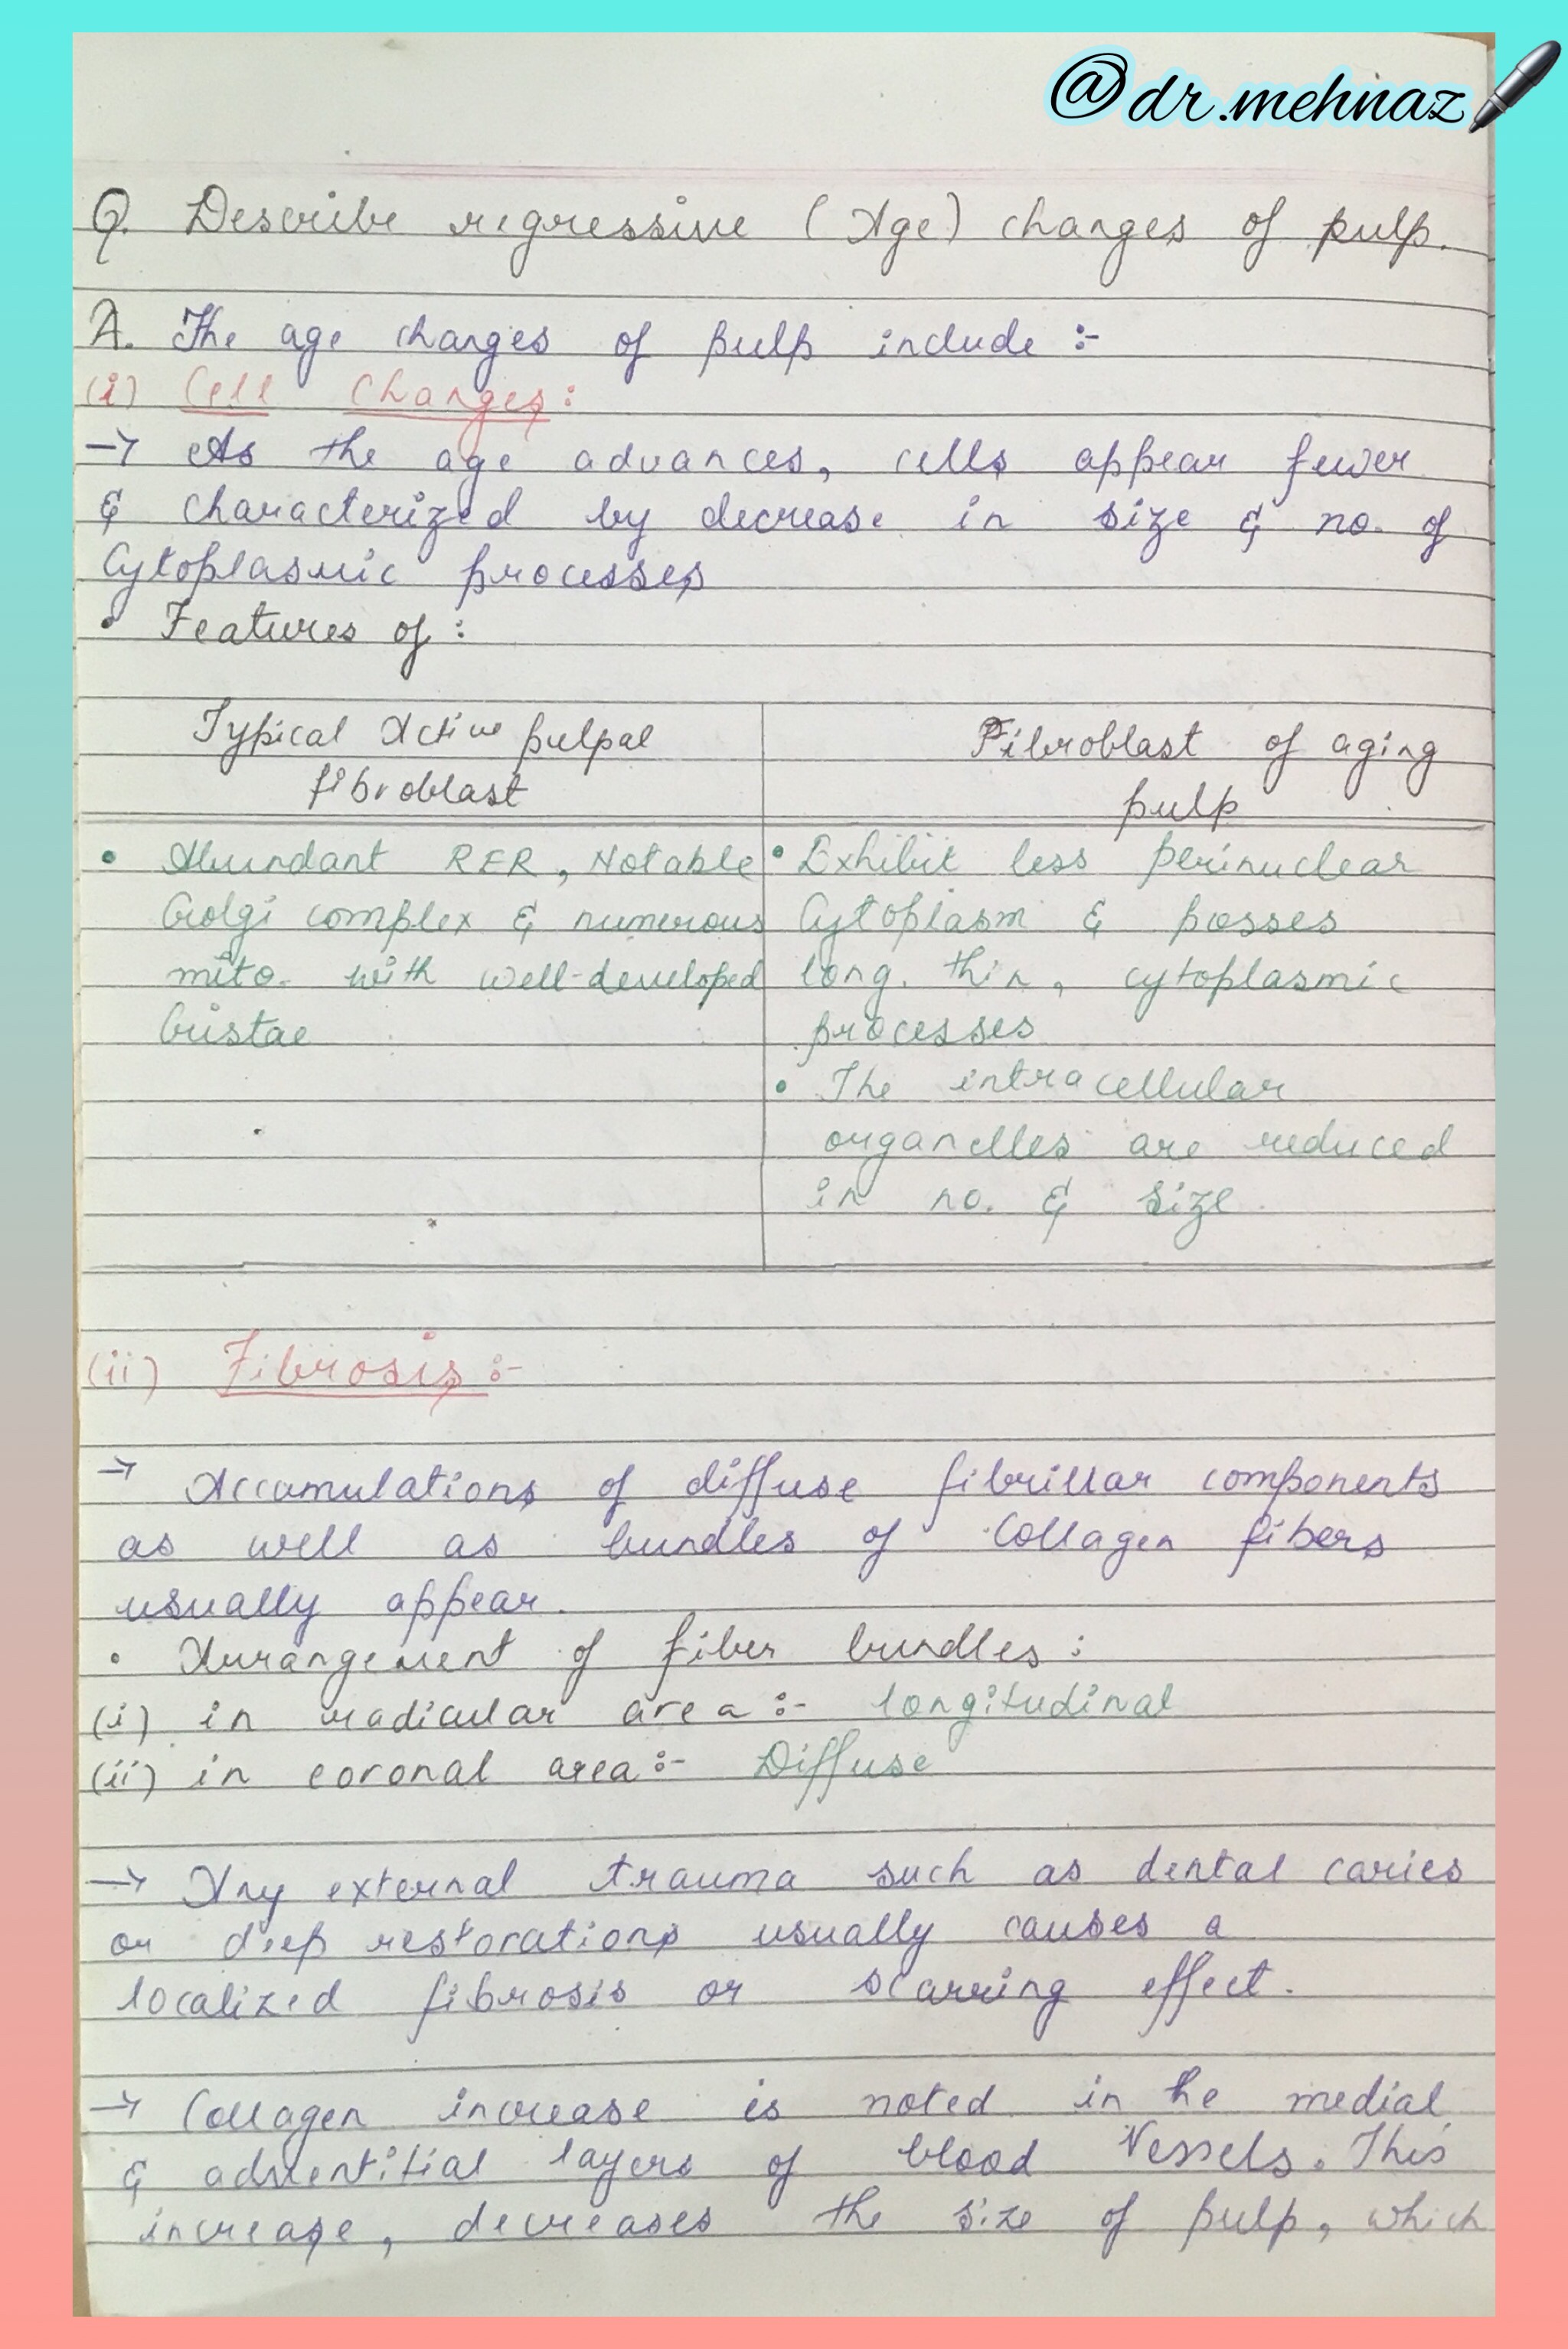 @dr.mehnaz
Q. Describe regressive (Age) changes of pulp.
A. The age changes of pulp include :-
(i) Cell Changes:
→ As the age advances, cells appear fewer
& characterized by decrease in size & no. of
Cytoplasmic processes
• Features of :
Typical Active pulpal
fibroblast
Fibroblast of aging
pulp
• Abundant RER, Notable
Golgi complex & numerous
mito. with well-developed
Cristae
• Exhibit less perinuclear
Cytoplasm & posses
long, thin, cytoplasmic
processes
• The intracellular
organelles are reduced
in no. & size.
(ii) Fibrosis :-
→ Accamulations of diffuse fibrillar components
as well as bundles of Collagen fibers
usually appear.
• Arrangement of fiber bundles :
(i) in radicular area :- longitudinal
(ii) in coronal area :- Diffuse
→ Any external trauma such as dental caries
or deep restorations usually causes a
localized fibrosis or scarring effect.
→ Collagen increase is noted in he medial
& adventitial layers of blood Vessels. This
increase, decreases the size of pulp, which